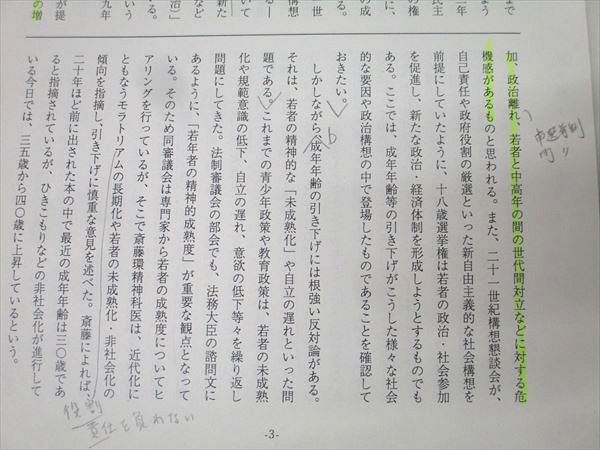 加、政治離れ、若者と中高年の間の世代間対立などに対する危
機感があるものと思われる。また、二十一世紀構想懇談会が、
自己責任や政府役割の厳選といった新自由主義的な社会構想を
前提にしていたように、十八歳選挙権は若者の政治・社会参加
を促進し、新たな政治・経済体制を形成しようとするものでも
ある。ここでは、成年年齢等の引き下げがこうした様々な社会
的な要因や政治構想の中で登場したものであることを確認して
おきたい。
しかしながら、成年年齢の引き下げには根強い反対論がある。
それは、若者の精神的な「未成熟化」や自立の遅れといった問
題である。これまでの青少年政策や教育政策は、若者の未成熟
化や規範意識の低下、自立の遅れ、意欲の低下等々を繰り返し
問題にしてきた。法制審議会の部会でも、法務大臣の諮問文に
あるように、「若年者の精神的成熟度」が重要な観点となって
いる。そのため同審議会は専門家から若者の成熟度についてヒ
アリングを行っているが、そこで斎藤環精神科医は、近代化に
ともなうモラトリアムの長期化や若者の未成熟化・非社会化の
傾向を指摘し、引き下げに慎重な意見を述べた。斎藤によれば、
二十年ほど前に出された本の中で最近の成年年齢は三〇歳であ
ると指摘されているが、ひきこもりなどの非社会化が進行して
いる今日では、三五歳から四〇歳に上昇しているという。
役割
責任を負わない
-3-